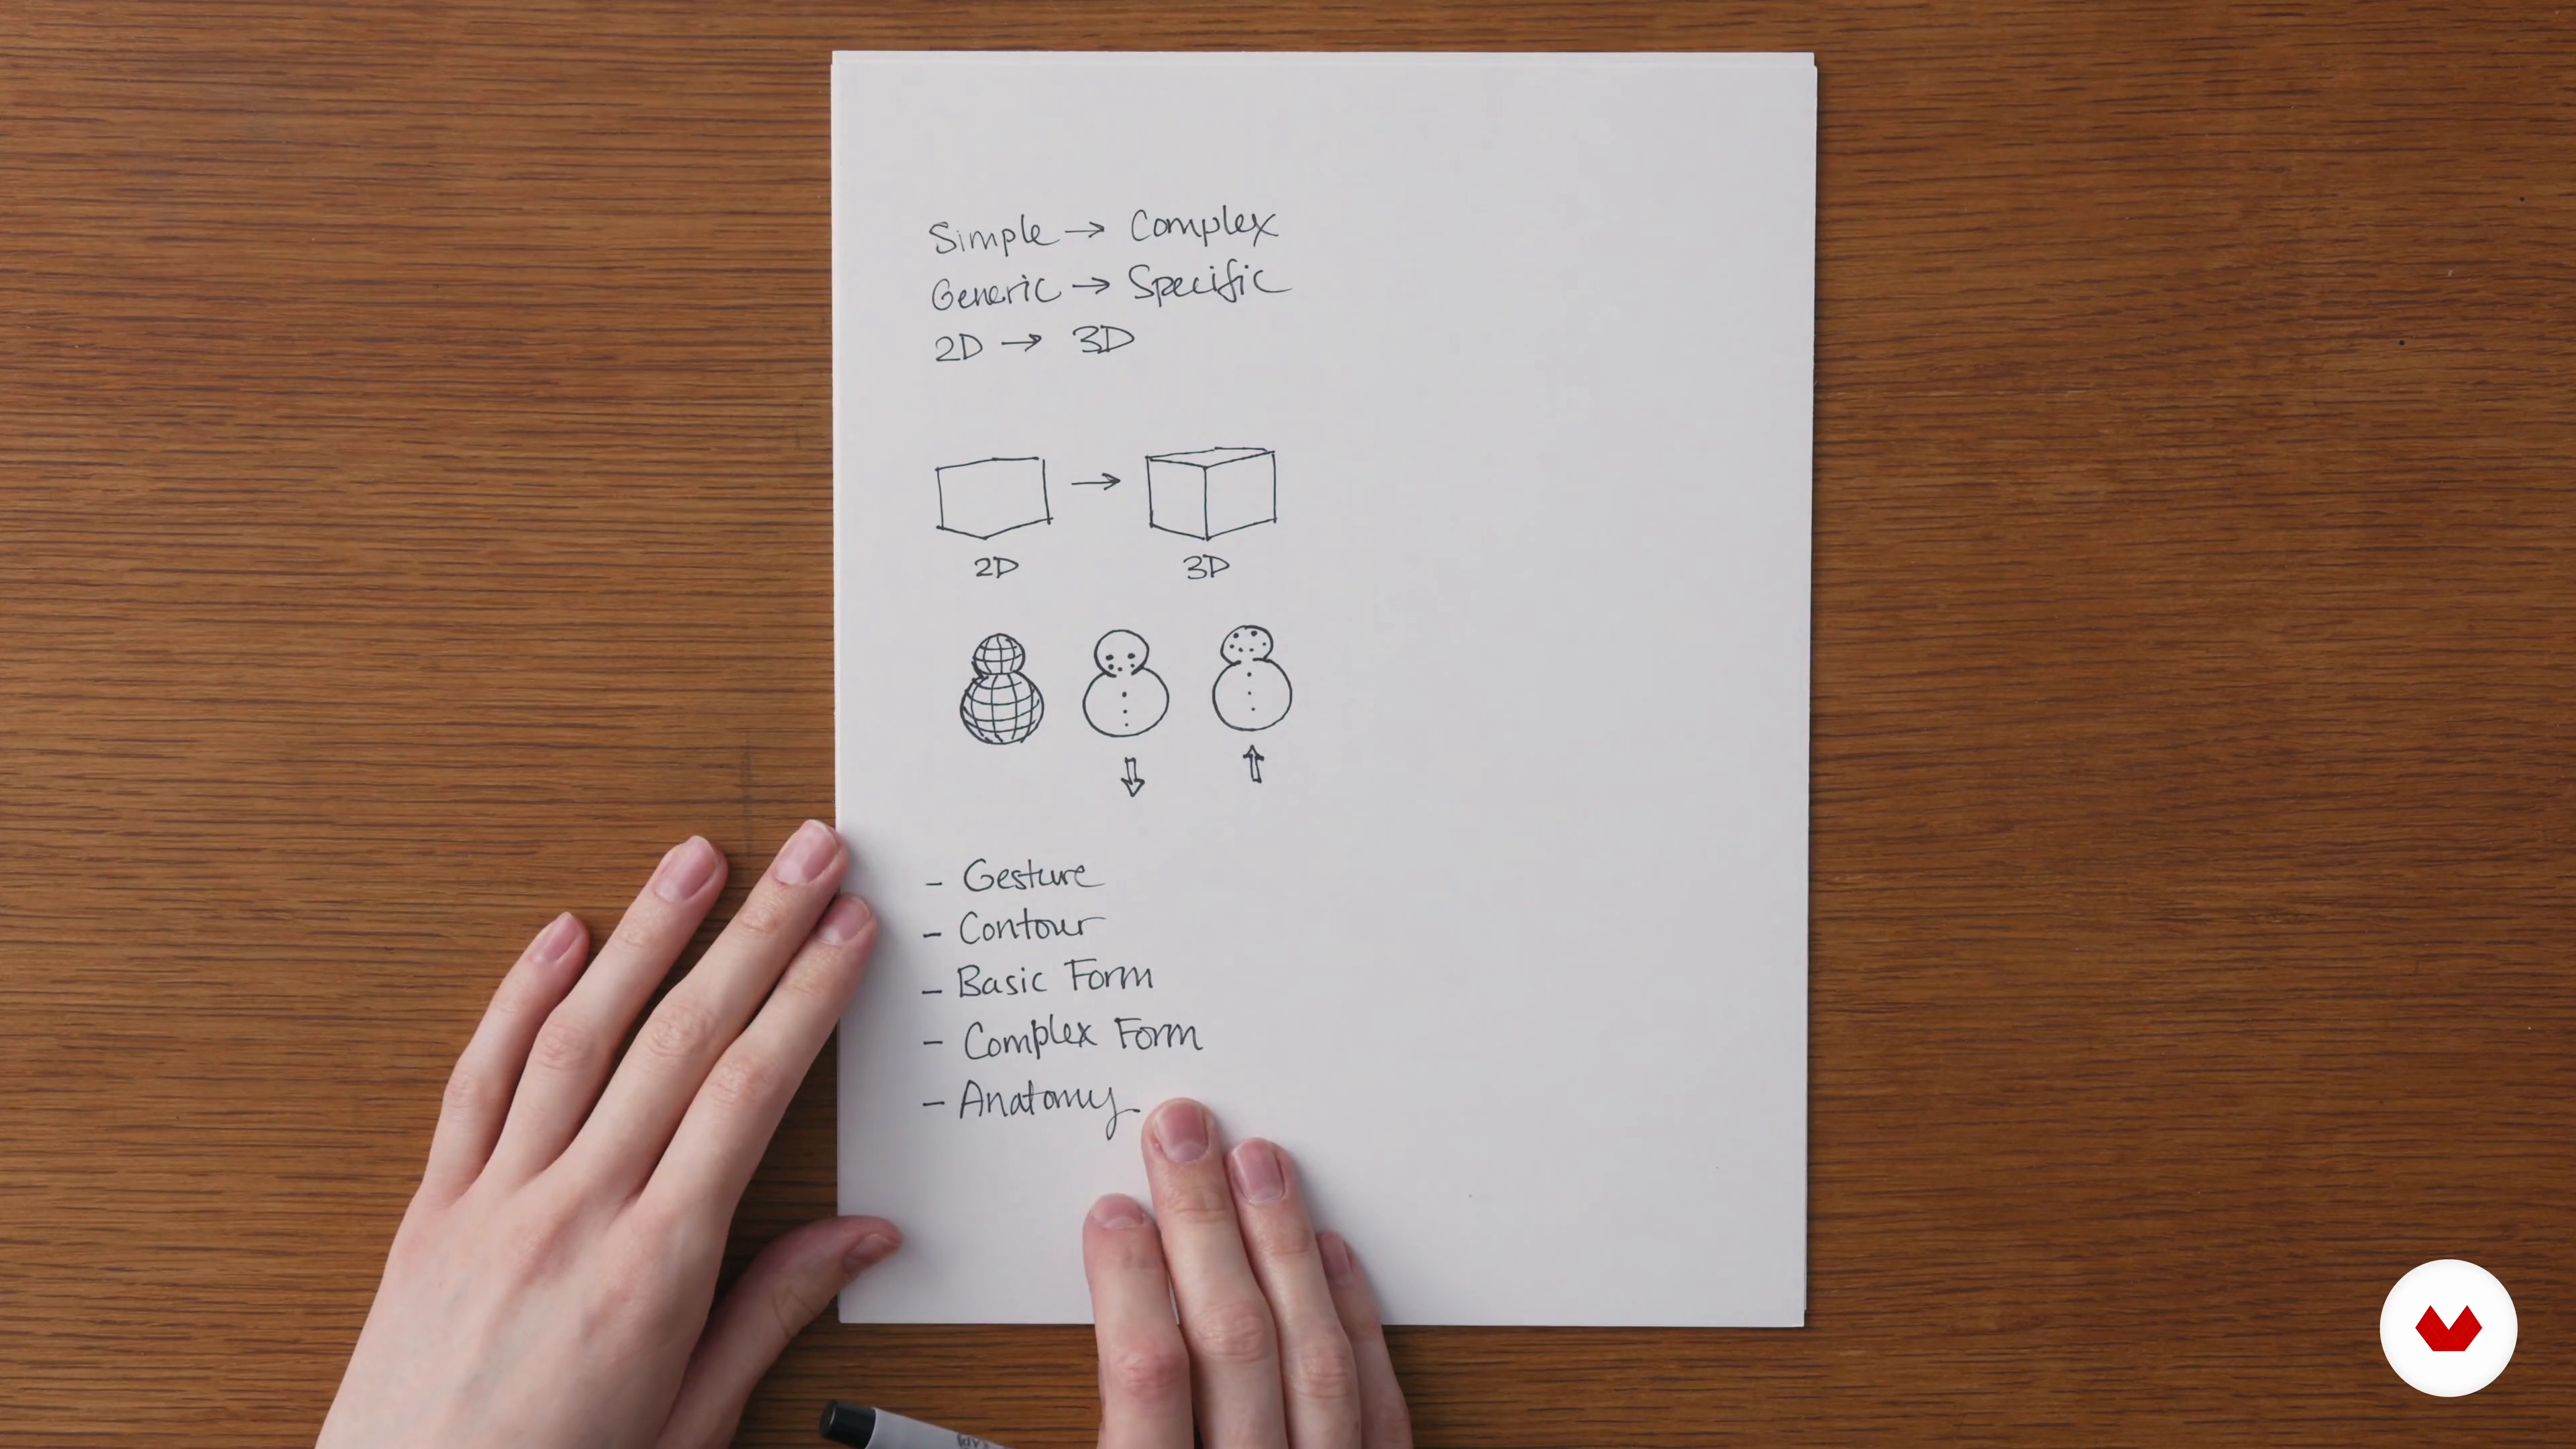 Simple → Complex
Generic → Specific
2D → 3D
2D 3D
- Gesture
- Contour
- Basic Form
- Complex Form
- Anatomy